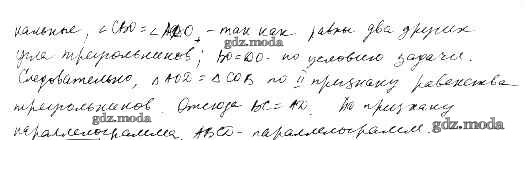 кальные, ∠CBO = ∠ADO, - так как равны два других
gdz.moda
угла треугольников; BO = DO - по условию задачи.
gdz.moda
Следовательно, △AOD = △COB по II признаку равенства
треугольников. Отсюда BC = AD. По признаку
gdz.moda
параллелограмма ABCD - параллелограмм.
gdz.moda